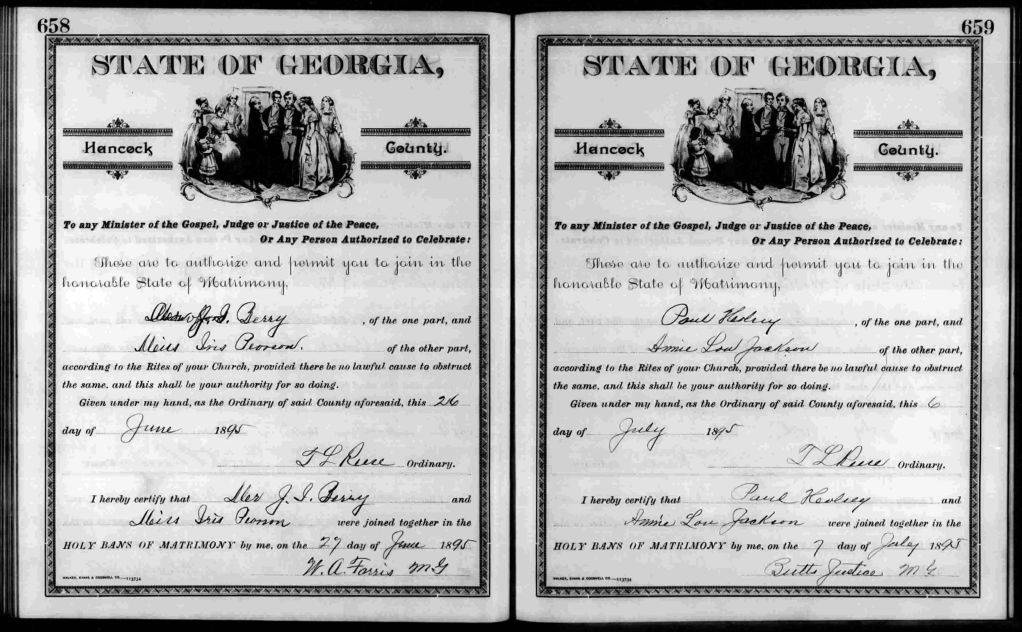 658
STATE OF GEORGIA,
Hancock County.
To any Minister of the Gospel, Judge or Justice of the Peace,
Or Any Person Authorized to Celebrate:
These are to authorize and permit you to join in the
honorable State of Matrimony,
J. I. Berry , of the one part, and
Miss Iris Pierson. of the other part,
according to the Rites of your Church, provided there be no lawful cause to obstruct
the same, and this shall be your authority for so doing.
Given under my hand, as the Ordinary of said County aforesaid, this 26
day of June 1895
T L Reese Ordinary.
I hereby certify that Mr J. I. Berry and
Miss Iris Pierson were joined together in the
HOLY BANS OF MATRIMONY by me, on the 27 day of June 1895
W. A. Farris M G
WALKER, EVANS & COGSWELL CO.—113734
659
STATE OF GEORGIA,
Hancock County.
To any Minister of the Gospel, Judge or Justice of the Peace,
Or Any Person Authorized to Celebrate:
These are to authorize and permit you to join in the
honorable State of Matrimony,
Paul , of the one part, and
Annie Lou Jackson of the other part,
according to the Rites of your Church, provided there be no lawful cause to obstruct
the same, and this shall be your authority for so doing.
Given under my hand, as the Ordinary of said County aforesaid, this 6
day of July 1895
T L Reese Ordinary.
I hereby certify that Paul and
Annie Lou Jackson were joined together in the
HOLY BANS OF MATRIMONY by me, on the 7 day of July 1895
Butts Justice M G
WALKER, EVANS & COGSWELL CO.—113734